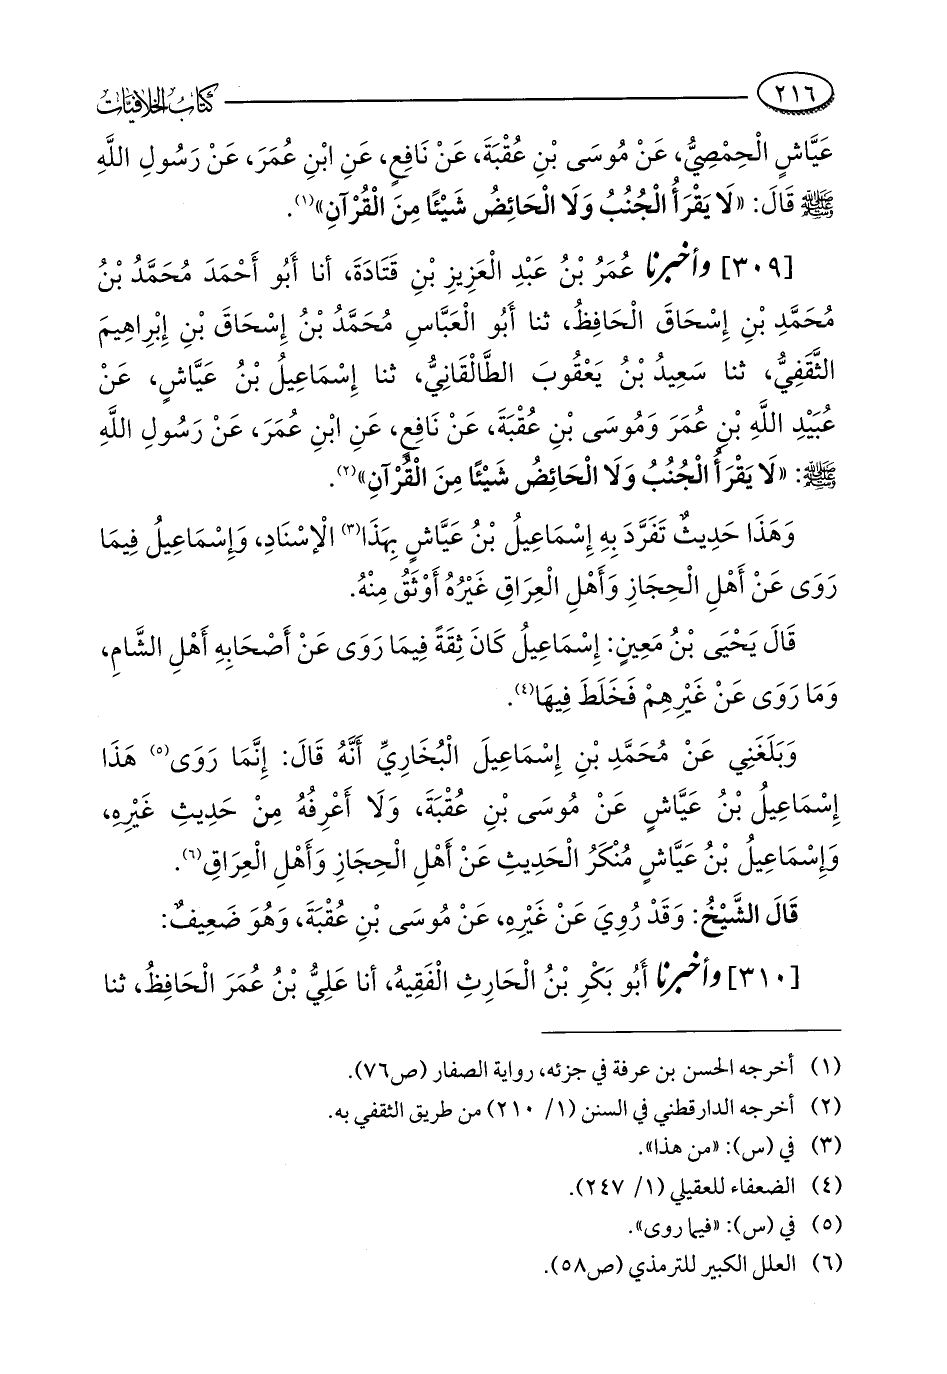 ٢١٦ كتاب الخلافيات
عَيَّاشٍ الْحِمْصِيُّ، عَنْ مُوسَى بْنِ عُقْبَةَ، عَنْ نَافِعٍ، عَنِ ابْنِ عُمَرَ، عَنْ رَسُولِ اللَّهِ
ﷺ قَالَ: «لَا يَقْرَأُ الْجُنُبُ وَلَا الْحَائِضُ شَيْئًا مِنَ الْقُرْآنِ»(١).
[٣٠٩] وأخبرنا عُمَرُ بْنُ عَبْدِ الْعَزِيزِ بْنِ قَتَادَةَ، أنا أَبُو أَحْمَدَ مُحَمَّدُ بْنُ
مُحَمَّدِ بْنِ إِسْحَاقَ الْحَافِظُ، ثنا أَبُو الْعَبَّاسِ مُحَمَّدُ بْنُ إِسْحَاقَ بْنِ إِبْرَاهِيمَ
الثَّقَفِيُّ، ثنا سَعِيدُ بْنُ يَعْقُوبَ الطَّالْقَانِيُّ، ثنا إِسْمَاعِيلُ بْنُ عَيَّاشٍ، عَنْ
عُبَيْدِ اللَّهِ بْنِ عُمَرَ وَمُوسَى بْنِ عُقْبَةَ، عَنْ نَافِعٍ، عَنِ ابْنِ عُمَرَ، عَنْ رَسُولِ اللَّهِ
ﷺ: «لَا يَقْرَأُ الْجُنُبُ وَلَا الْحَائِضُ شَيْئًا مِنَ الْقُرْآنِ»(٢).
وَهَذَا حَدِيثٌ تَفَرَّدَ بِهِ إِسْمَاعِيلُ بْنُ عَيَّاشٍ بِهَذَا(٣) الْإِسْنَادِ، وَإِسْمَاعِيلُ فِيمَا
رَوَى عَنْ أَهْلِ الْحِجَازِ وَأَهْلِ الْعِرَاقِ غَيْرُهُ أَوْثَقُ مِنْهُ.
قَالَ يَحْيَى بْنُ مَعِينٍ: إِسْمَاعِيلُ كَانَ ثِقَةً فِيمَا رَوَى عَنْ أَصْحَابِهِ أَهْلِ الشَّامِ،
وَمَا رَوَى عَنْ غَيْرِهِمْ فَخَلَطَ فِيهَا(٤).
وَبَلَغَنِي عَنْ مُحَمَّدِ بْنِ إِسْمَاعِيلَ الْبُخَارِيِّ أَنَّهُ قَالَ: إِنَّمَا رَوَى(٥) هَذَا
إِسْمَاعِيلُ بْنُ عَيَّاشٍ عَنْ مُوسَى بْنِ عُقْبَةَ، وَلَا أَعْرِفُهُ مِنْ حَدِيثِ غَيْرِهِ،
وَإِسْمَاعِيلُ بْنُ عَيَّاشٍ مُنْكَرُ الْحَدِيثِ عَنْ أَهْلِ الْحِجَازِ وَأَهْلِ الْعِرَاقِ(٦).
قَالَ الشَّيْخُ: وَقَدْ رُوِيَ عَنْ غَيْرِهِ، عَنْ مُوسَى بْنِ عُقْبَةَ، وَهُوَ ضَعِيفٌ:
[٣١٠] وأخبرنا أَبُو بَكْرِ بْنُ الْحَارِثِ الْفَقِيهُ، أنا عَلِيُّ بْنُ عُمَرَ الْحَافِظُ، ثنا
(١) أخرجه الحسن بن عرفة في جزئه، رواية الصفار (ص٧٦).
(٢) أخرجه الدارقطني في السنن (١/ ٢١٠) من طريق الثقفي به.
(٣) في (س): «من هذا».
(٤) الضعفاء للعقيلي (١/ ٢٤٧).
(٥) في (س): «فيما روى».
(٦) العلل الكبير للترمذي (ص٥٨).